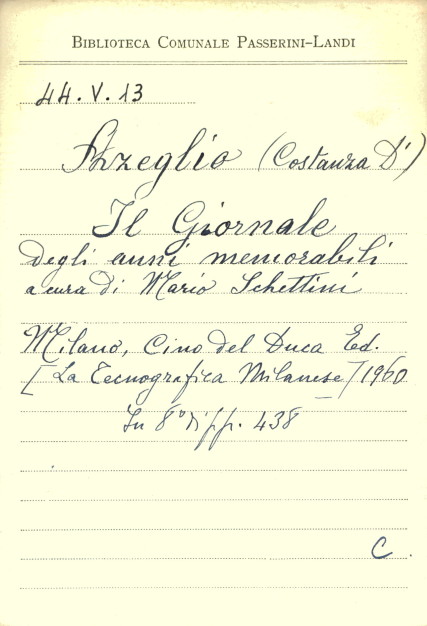 BIBLIOTECA COMUNALE PASSERINI-LANDI
44.V.13
Azeglio (Costanza D')
Il Giornale
degli anni memorabili
a cura di Mario Schettini
Milano, Cino del Duca Ed.
[La Tecnografica Milanese] 1960
In 8° di pp. 438
C.